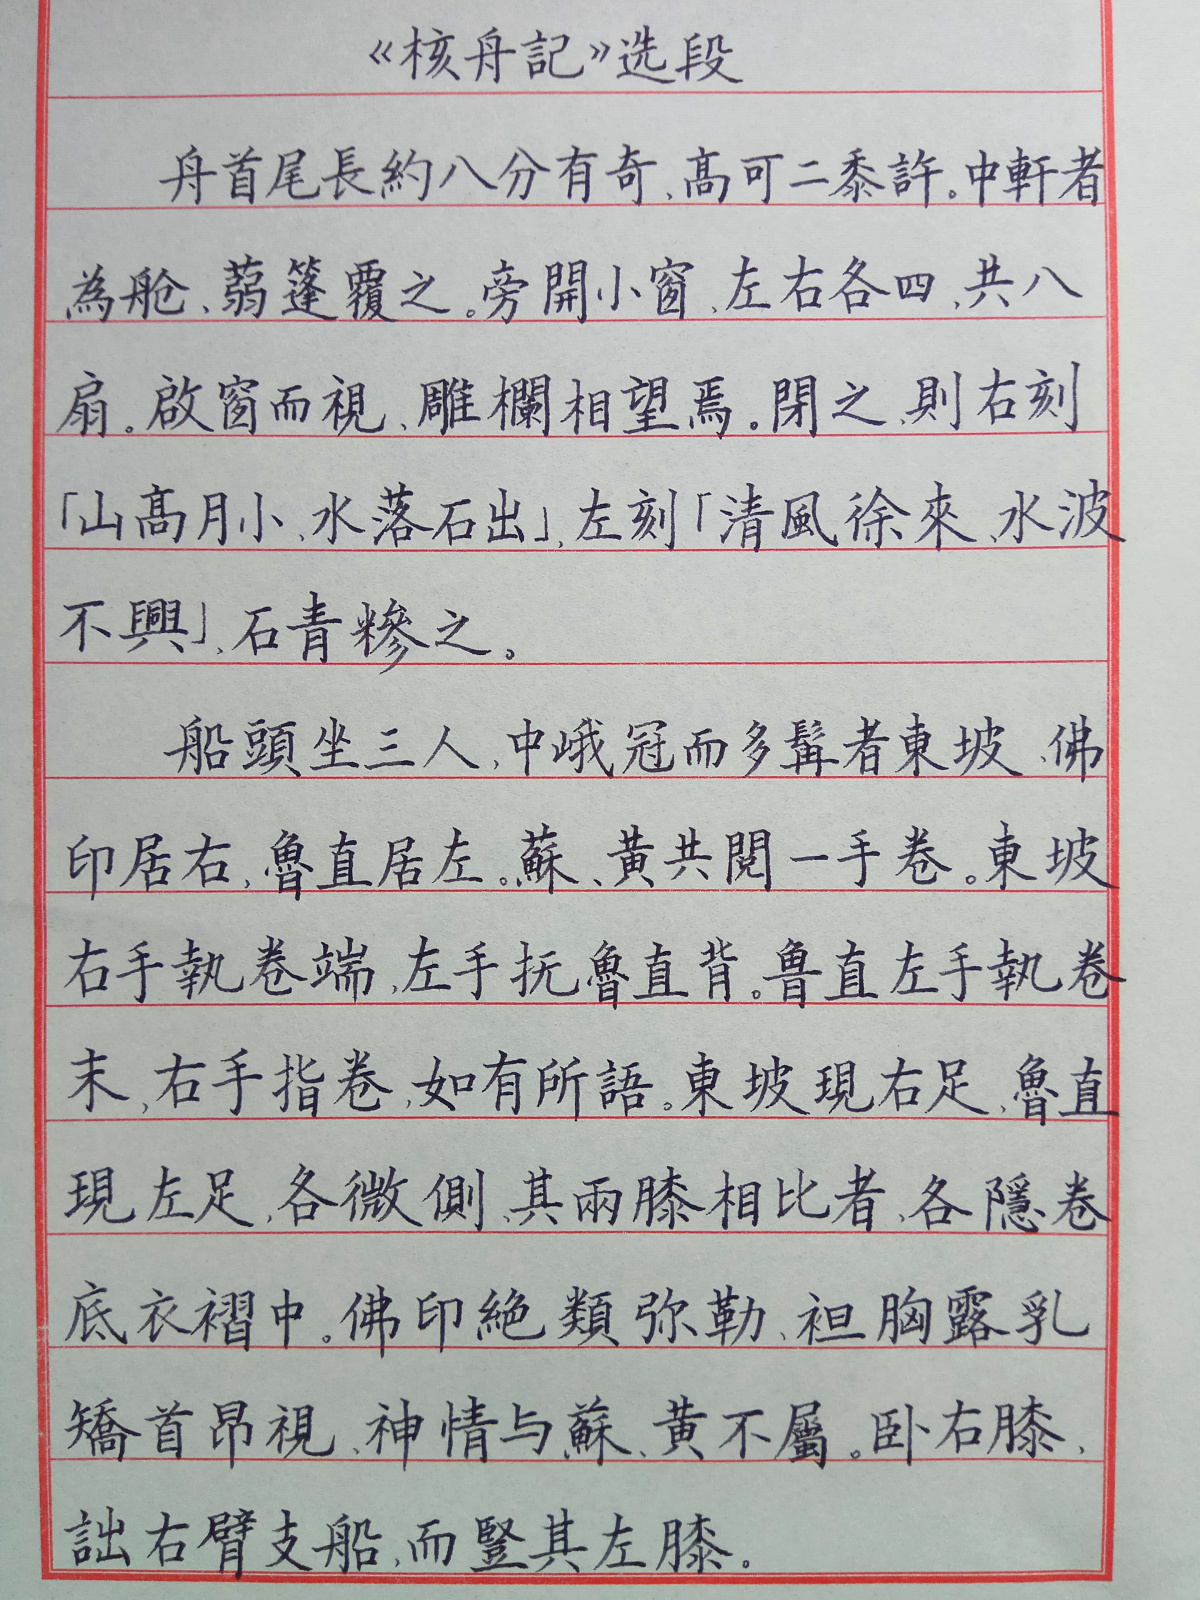 《核舟記》选段
舟首尾長約八分有奇、高可二黍許。中軒者
為舱、蒻篷覆之。旁開小窗、左右各四、共八
扇。啟窗而視、雕欄相望焉。閉之、則右刻
「山高月小、水落石出」、左刻「清風徐來、水波
不興」、石青糝之。
船頭坐三人、中峨冠而多髯者東坡、佛
印居右、魯直居左。蘇、黃共閱一手卷。東坡
右手執卷端、左手抚魯直背。魯直左手執卷
末、右手指卷、如有所語。東坡現右足、魯直
現左足、各微側、其兩膝相比者、各隱卷
底衣褶中。佛印絕類弥勒、袒胸露乳
矯首昂視、神情与蘇、黃不屬。卧右膝、
詘右臂支船、而豎其左膝。